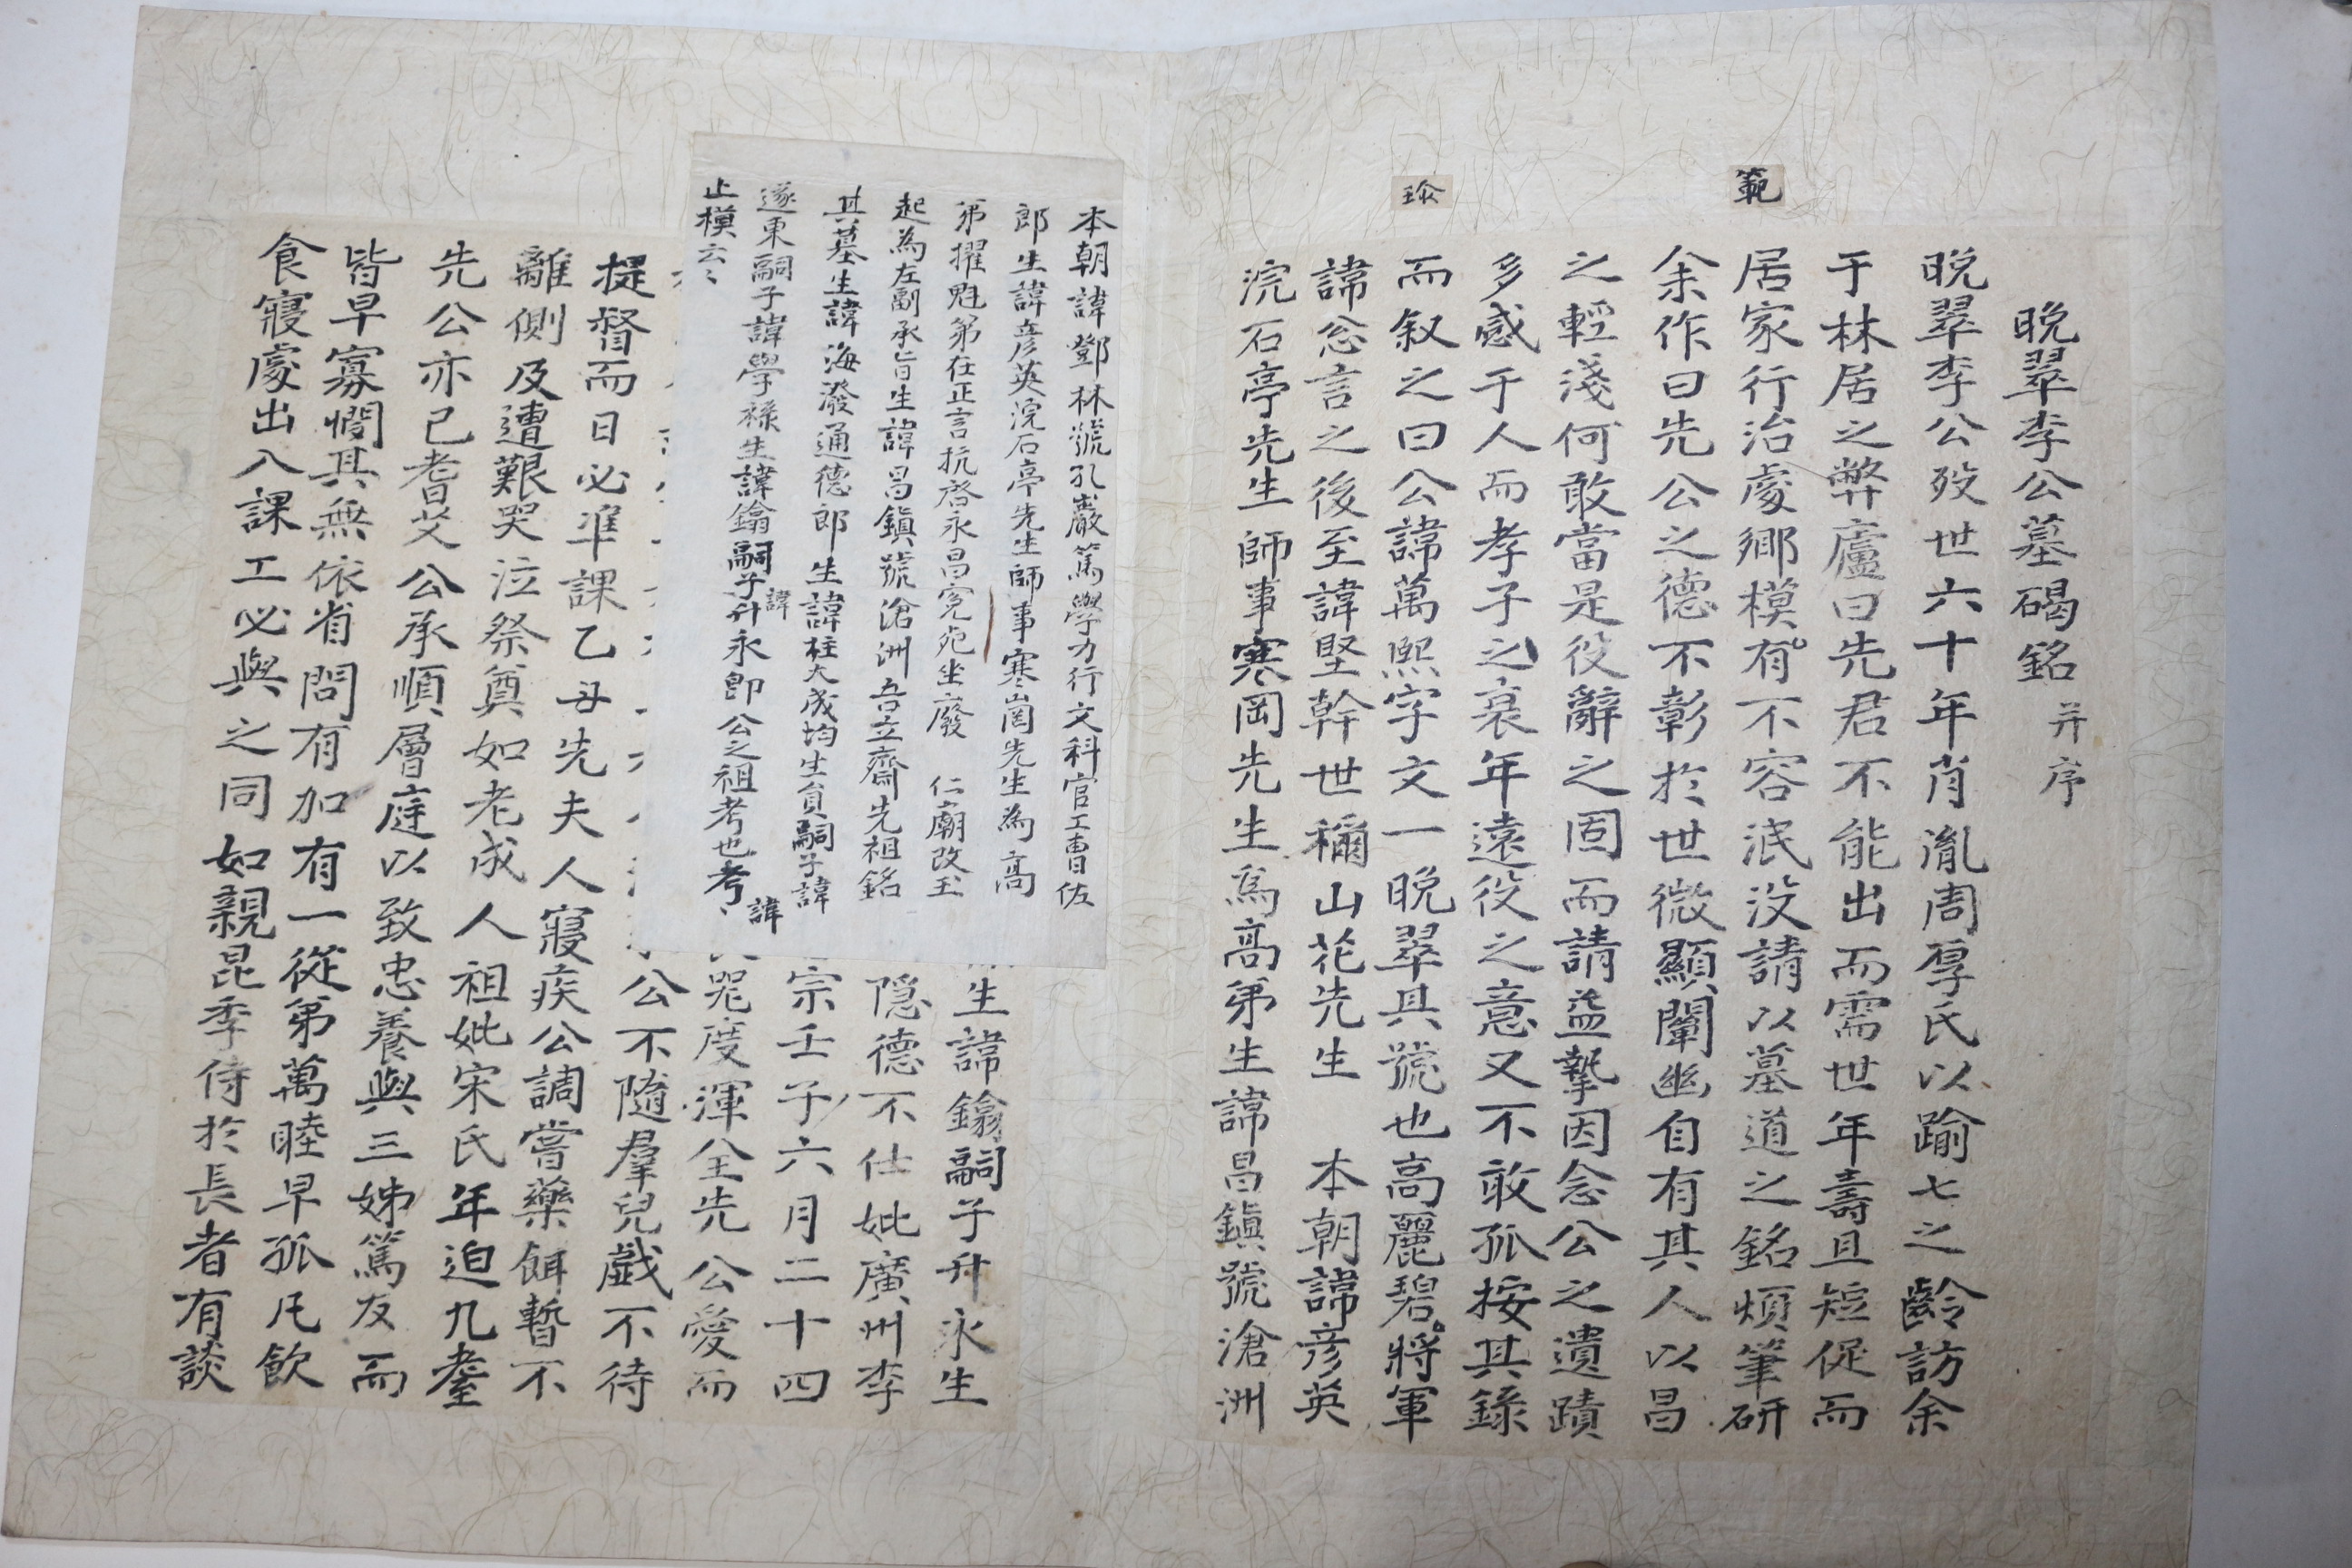 範
珎
晩翠李公墓碣銘 幷序
晩翠李公歿世六十年肖胤周厚氏以踰七之齡訪余
于林居之弊廬曰先君不能出而需世年壽且短促而
居家行治處鄕模有不容泯沒請以墓道之銘煩筆硏
余作曰先公之德不彰於世微顯闡幽自有其人以昌
之輕淺何敢當是役辭之固而請益摯因念公之遺蹟
多感于人而孝子之衰年遠役之意又不敢孤按其錄
而叙之曰公諱萬熙字文一晩翠其號也高麗碧將軍
諱忩言之後至諱堅幹世稱山花先生 本朝諱彦英
浣石亭先生師事寒岡先生爲高第生諱昌鎭號滄洲
本朝諱鄧林號孔巖篤學力行文科官工曹佐
郎生諱彦英浣石亭先生師事寒岡先生為高
弟擢魁第在正言抗啓永昌寃死坐廢 仁廟改玉
起為左副承旨生諱昌鎭號滄洲吾立齋先祖銘
其墓生諱海潑通德郎生諱柱大成均生員嗣子諱
遂東嗣子諱學祿生諱鑰嗣子諱升永即公之祖考也考諱
止模云〻
生諱鑰嗣子升永生
隱德不仕妣廣州李
宗壬子六月二十四
咒度渾全先公愛而
公不隨羣兒戱不待
提督而日必準課乙丑先夫人寢疾公調嘗藥餌暫不
離側及遭艱哭泣祭奠如老成人祖妣宋氏年迫九耋
先公亦已耆艾公承順層庭以致忠養與三姊篤友而
皆早寡憫其無依省問有加有一從弟萬睦早孤凡飮
食寢處出入課工必與之同如親昆季侍於長者有談